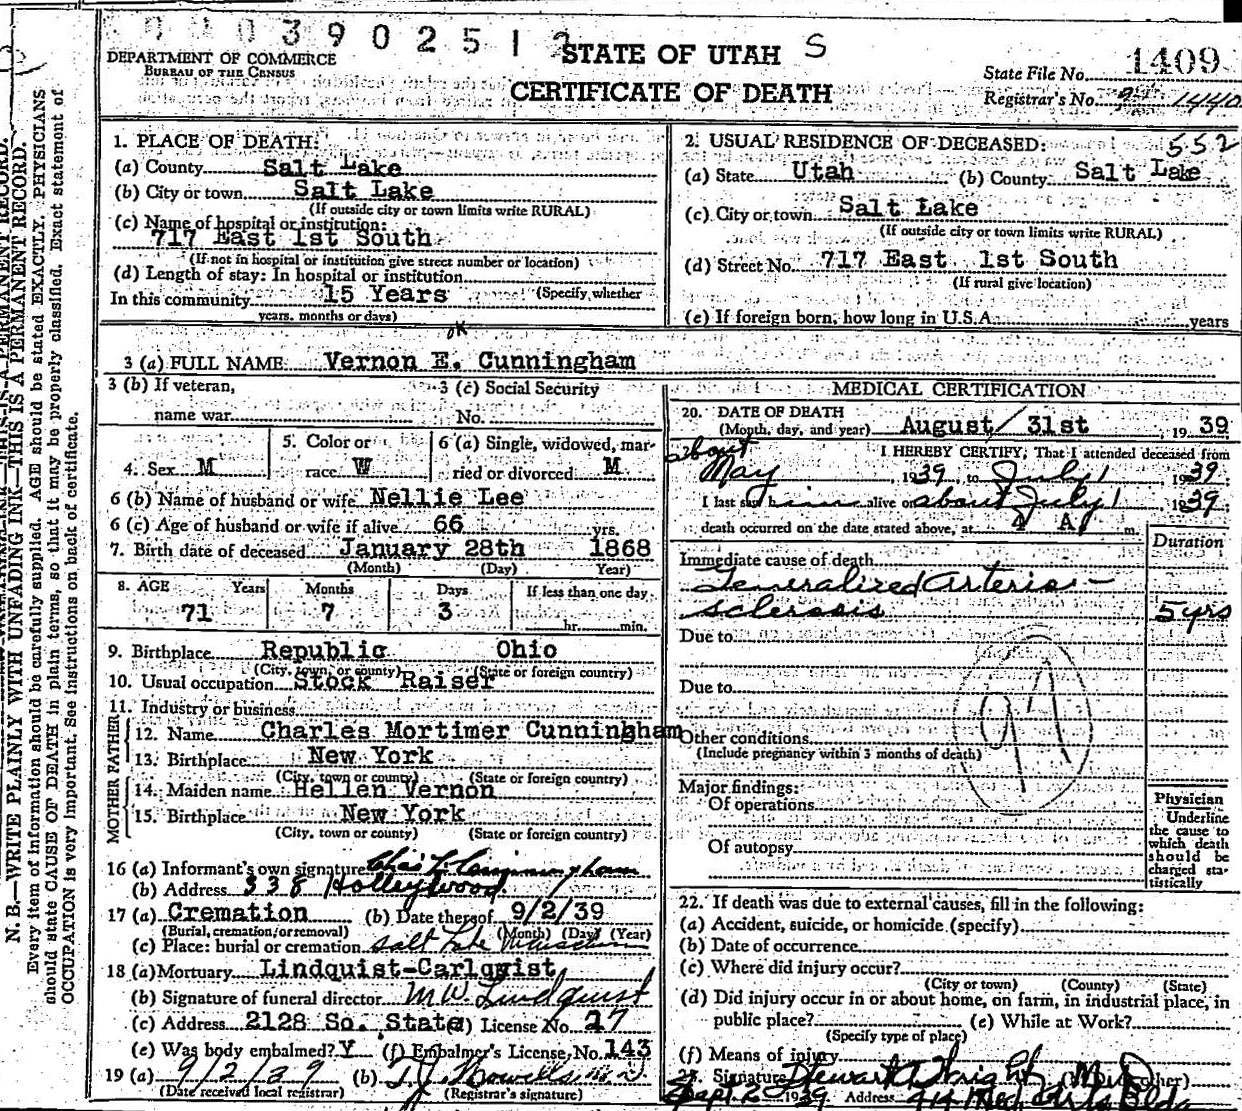 390251
STATE OF UTAH S
DEPARTMENT OF COMMERCE
BUREAU OF THE CENSUS
CERTIFICATE OF DEATH
State File No. 1409
Registrar's No. 1440
N. B.—WRITE PLAINLY WITH UNFADING INK—THIS IS A PERMANENT RECORD.
Every item of information should be carefully supplied. AGE should be stated EXACTLY. PHYSICIANS
should state CAUSE OF DEATH in plain terms, so that it may be properly classified. Exact statement of
OCCUPATION is very important. See instructions on back of certificate.
1. PLACE OF DEATH:
(a) County Salt Lake
(b) City or town Salt Lake
(If outside city or town limits write RURAL)
(c) Name of hospital or institution:
717 East 1st South
(If not in hospital or institution give street number or location)
(d) Length of stay: In hospital or institution
In this community 15 Years (Specify whether
years, months or days)
2. USUAL RESIDENCE OF DECEASED: 552
(a) State Utah (b) County Salt Lake
(c) City or town Salt Lake
(If outside city or town limits write RURAL)
(d) Street No. 717 East 1st South
(If rural give location)
(e) If foreign born, how long in U.S.A. years
OK
3 (a) FULL NAME Vernon E. Cunningham
3 (b) If veteran,
name war
3 (c) Social Security
No.
4. Sex M
5. Color or
race W
6 (a) Single, widowed, mar-
ried or divorced M
6 (b) Name of husband or wife Nellie Lee
6 (c) Age of husband or wife if alive 66 yrs.
7. Birth date of deceased January 28th 1868
(Month) (Day) Year)
8. AGE Years Months Days If less than one day
71 7 3 hr. min.
9. Birthplace Republic Ohio
(City, town, or county) (State or foreign country)
10. Usual occupation Stock Raiser
11. Industry or business
FATHER
12. Name Charles Mortimer Cunningham
13. Birthplace New York
(City, town or county) (State or foreign country)
MOTHER
14. Maiden name Hellen Vernon
15. Birthplace New York
(City, town or county) (State or foreign country)
16 (a) Informant's own signature Chas L. Cunningham
(b) Address 338 Holleywood
17 (a) Cremation (b) Date thereof 9/2/39
(Burial, cremation, or removal) (Month) (Day) (Year)
(c) Place: burial or cremation Salt Lake
18 (a) Mortuary Lindquist-Carlquist
(b) Signature of funeral director M W Lindquist
(c) Address 2128 So. State (d) License No. 27
(e) Was body embalmed? Y (f) Embalmer's License, No. 143
19 (a) 9/2/39 (b) T.J. Howells M.D.
(Date received local registrar) (Registrar's signature)
MEDICAL CERTIFICATION
20. DATE OF DEATH
(Month, day, and year) August 31st, 19 39
I HEREBY CERTIFY, That I attended deceased from
about
May 1939, to July 1 1939
I last saw him alive on about July 1 1939
death occurred on the date stated above, at 4 A m.
Duration
Immediate cause of death
Generalized Arterio-
sclerosis 5 yrs
Due to
Due to
97
Other conditions
(Include pregnancy within 3 months of death)
Major findings:
Of operations
Of autopsy
Physician
Underline
the cause to
which death
should be
charged sta-
tistically
22. If death was due to external causes, fill in the following:
(a) Accident, suicide, or homicide (specify)
(b) Date of occurrence
(c) Where did injury occur?
(City or town) (County) (State)
(d) Did injury occur in or about home, on farm, in industrial place, in
public place? (e) While at Work?
(Specify type of place)
(f) Means of injury
23. Signature Stewart Wright (M.D. other)
Sept. 2 1939 Address 914 Med Arts Bldg